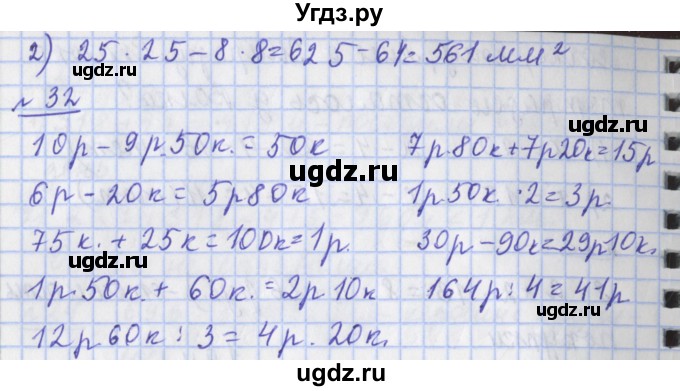 Угдз.ру
2) 25 · 25 – 8 · 8 = 625 – 64 = 561 мм²
ugdz.ru
ugdz.ru
№ 32
10р – 9р.50к. = 50к 7р.80к + 7р20к = 15р
ugdz.ru
6р – 20к = 5р80к 1р.50к. · 2 = 3р.
75к. + 25к = 100к = 1р. 30р – 90к = 29р10к.
ugdz.ru
ugdz.ru
1р.50к. + 60к. = 2р10к 164р : 4 = 41р
12р.60к : 3 = 4р.20к.
ugdz.ru